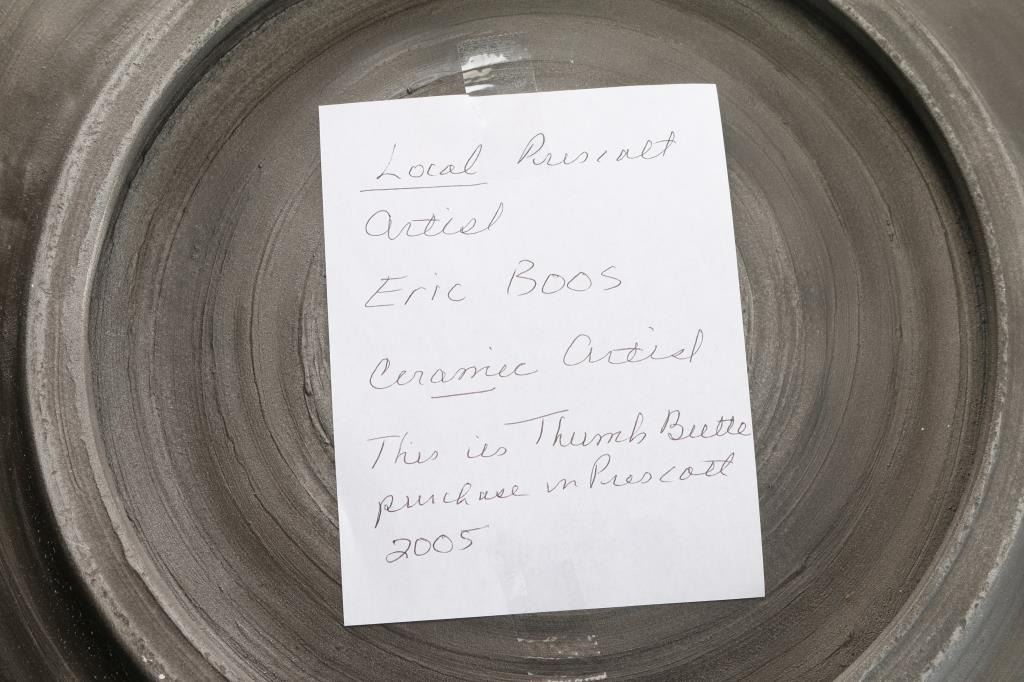 Local Prescott
Artist
Eric Boos
Ceramic Artist
This is Thumb Butte
purchase in Prescott
2005